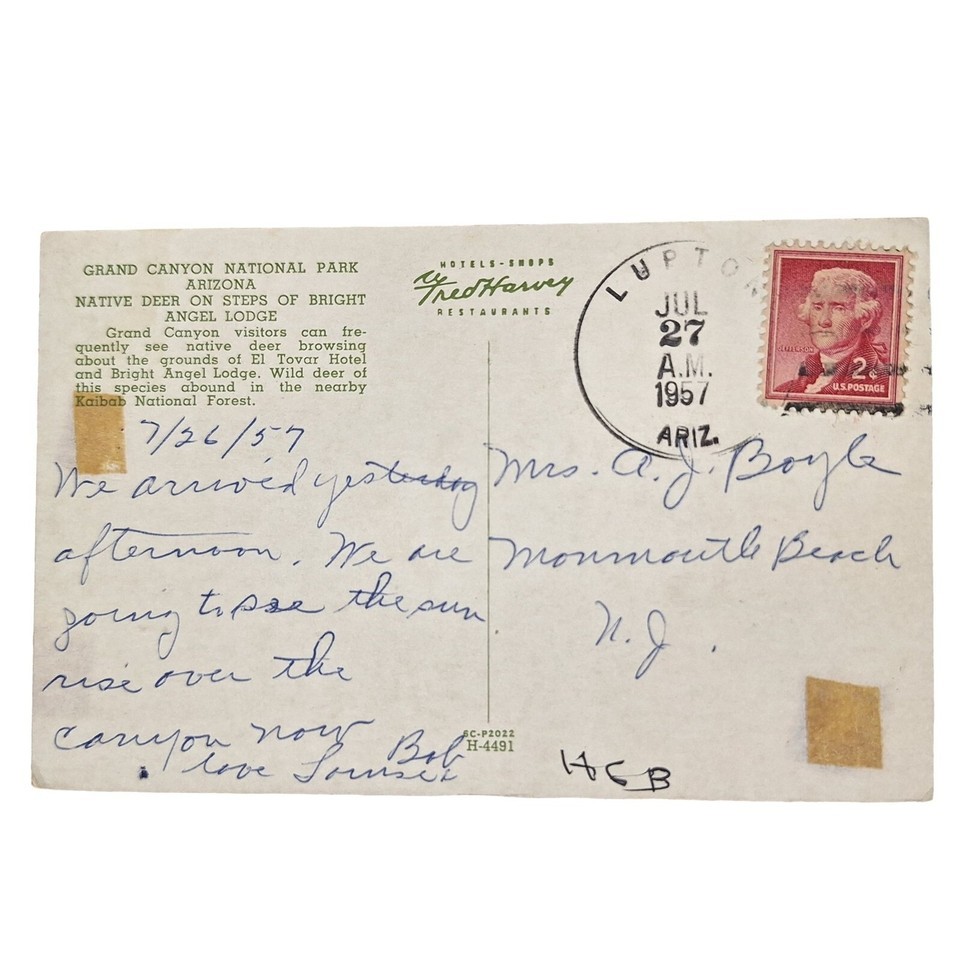 GRAND CANYON NATIONAL PARK
ARIZONA
NATIVE DEER ON STEPS OF BRIGHT
ANGEL LODGE
Grand Canyon visitors can fre-
quently see native deer browsing
about the grounds of El Tovar Hotel
and Bright Angel Lodge. Wild deer of
this species abound in the nearby
Kaibab National Forest.
HOTELS-SHOPS
Fred Harvey
RESTAURANTS
LUPTON
JUL
27
A.M.
1957
ARIZ.
JEFFERSON
2¢
U.S. POSTAGE
7/26/57
We arrived yesterday
afternoon. We are
going to see the sun
rise over the
canyon now
love Louise & Bob
Mrs. A. J. Boyle
Monmouth Beach
N.J.
SC-P2022
H-4491
HCB